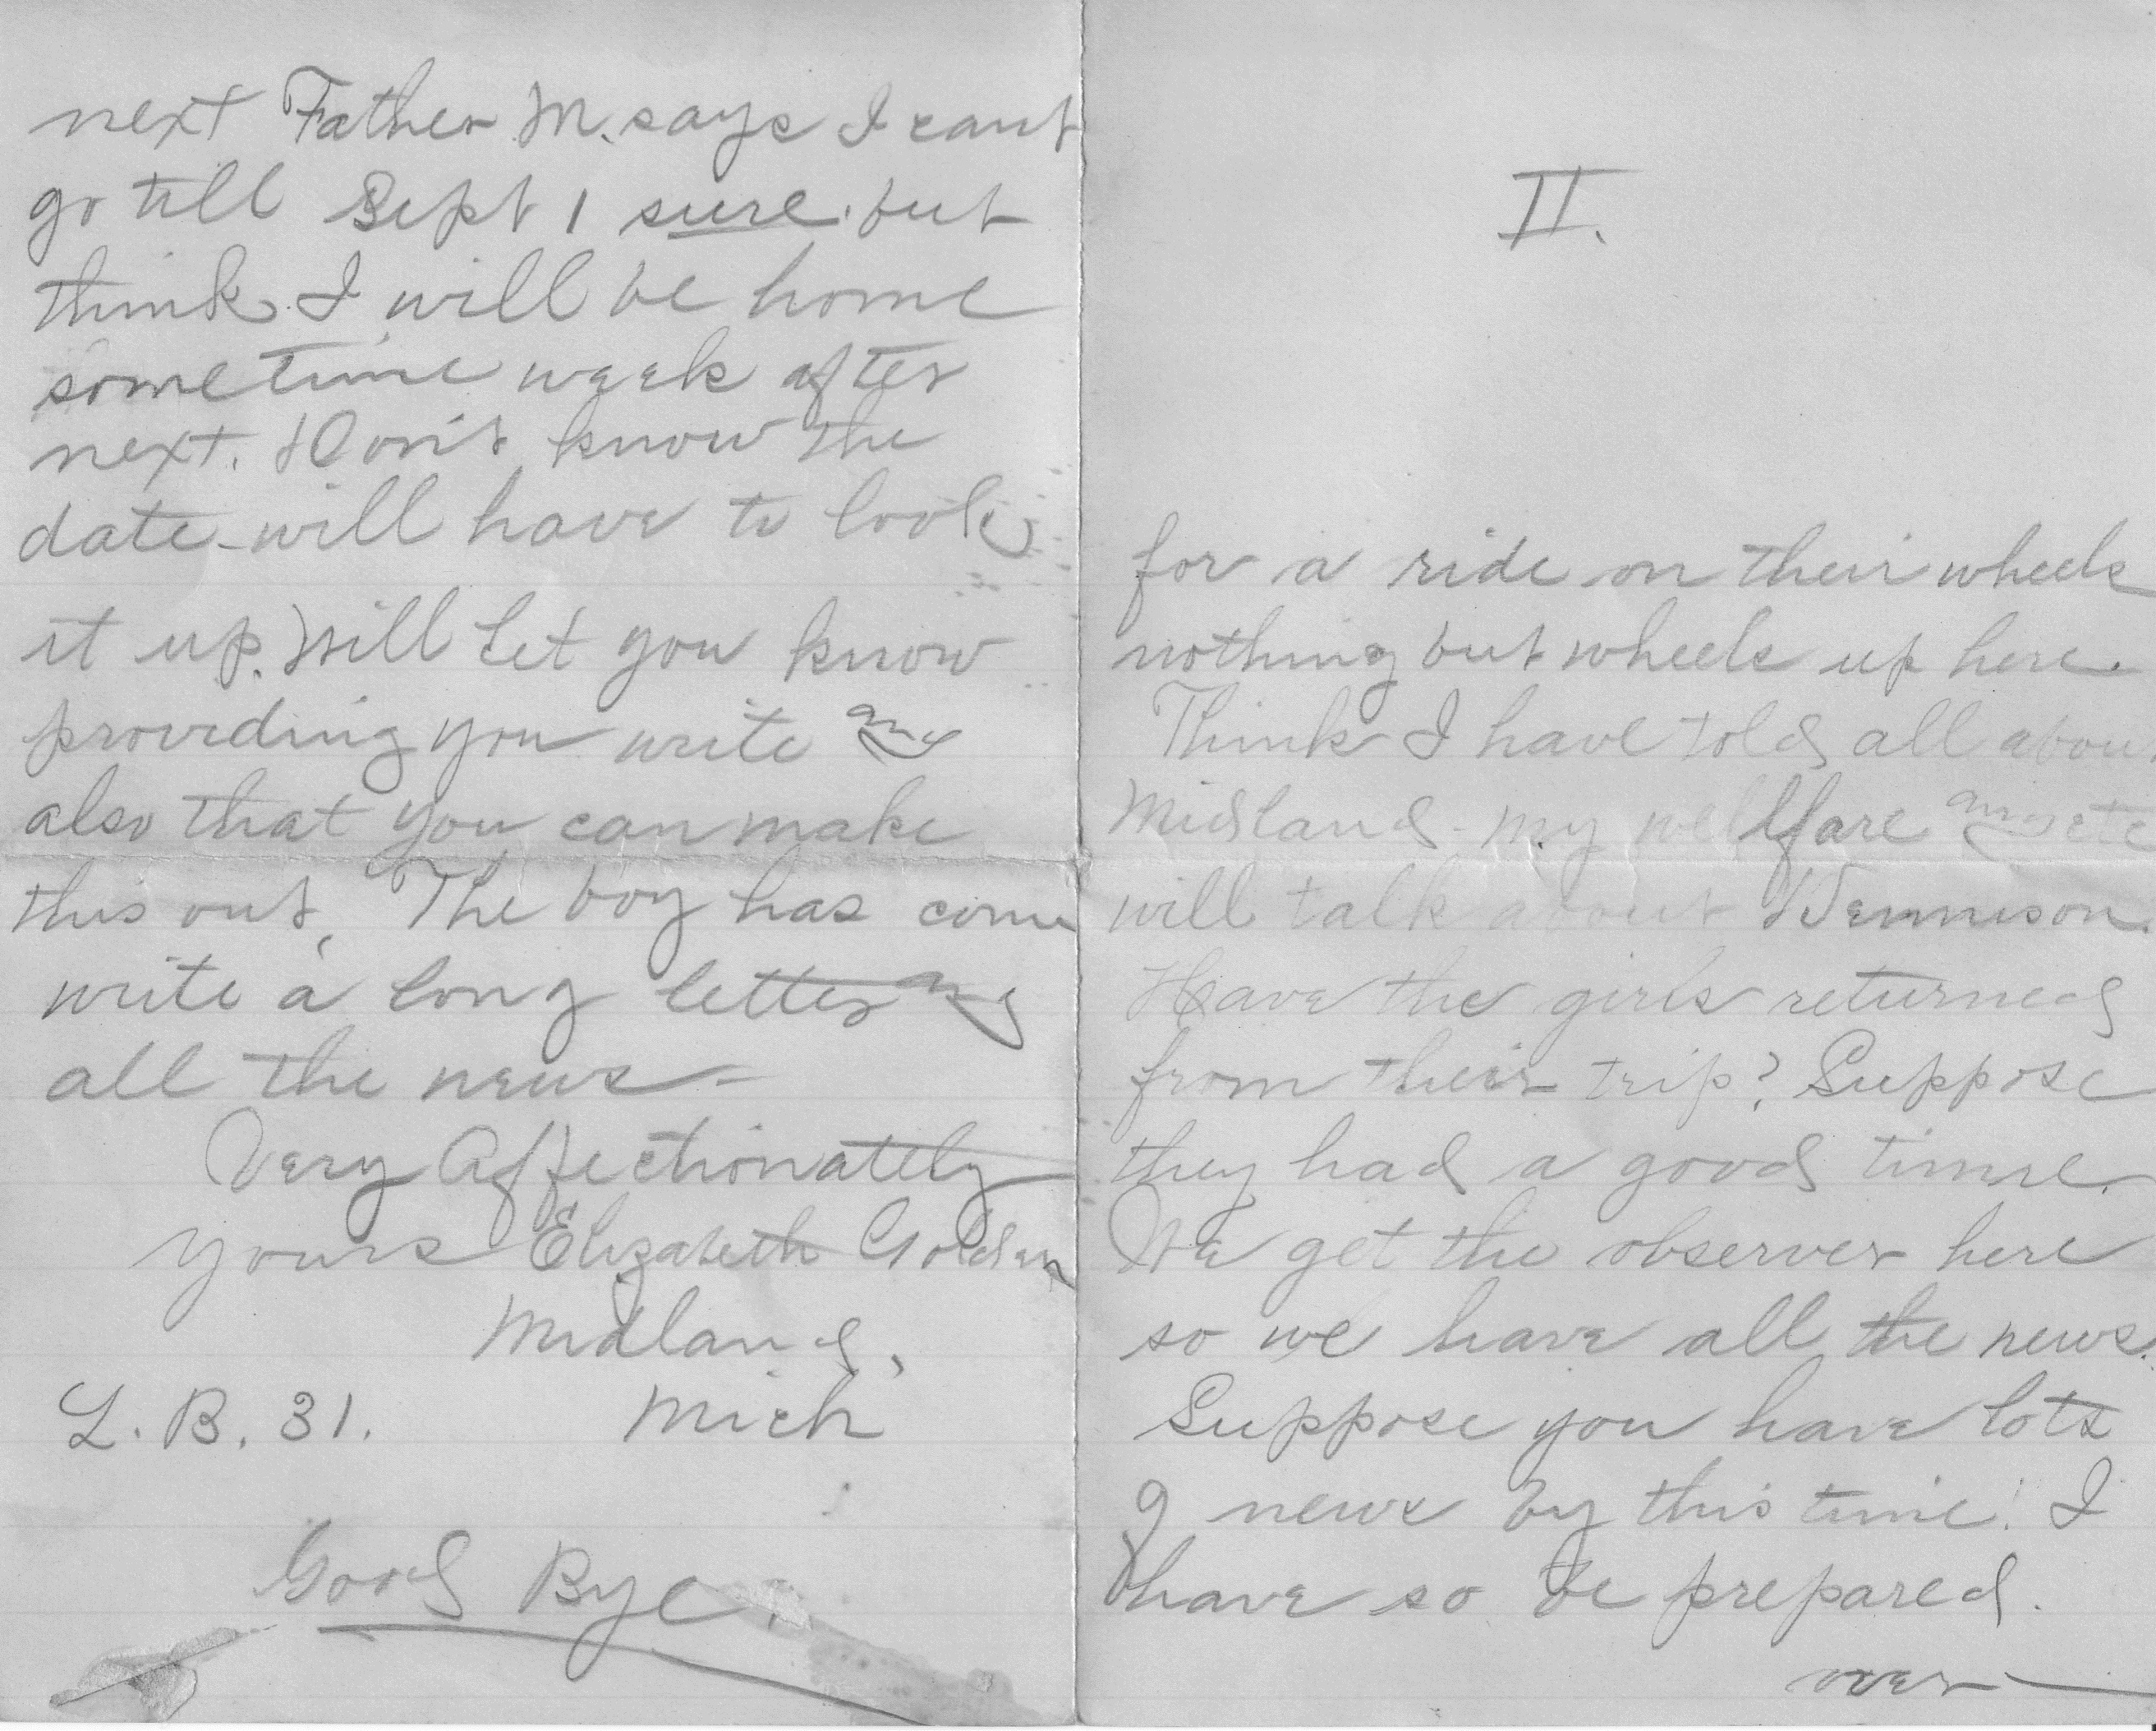 next Father M. says I cant
go till Sept 1 sure. but
think I will be home
sometime week after
next. Don't know the
date - will have to look
it up. Will let you know
providing you write and
also that you can make
this out. The boy has come
write a long letter and
all the news -
Very Affectionately
yours Elizabeth Golden
Midland,
L. B. 31. Mich
Good Bye.
II.
for a ride on their wheels
nothing but wheels up here.
Think I have told all about
Midland - my wellfare and etc
will talk about Dennison.
Have the girls returned
from their trip? Suppose
they had a good time.
We get the observer here
so we have all the news.
Suppose you have lots
of news by this time! I
have so be prepared.
over